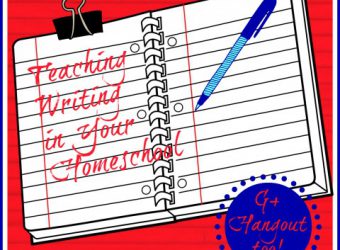 Teaching
Writing
in Your
Homeschool
G+
Hangout
too!